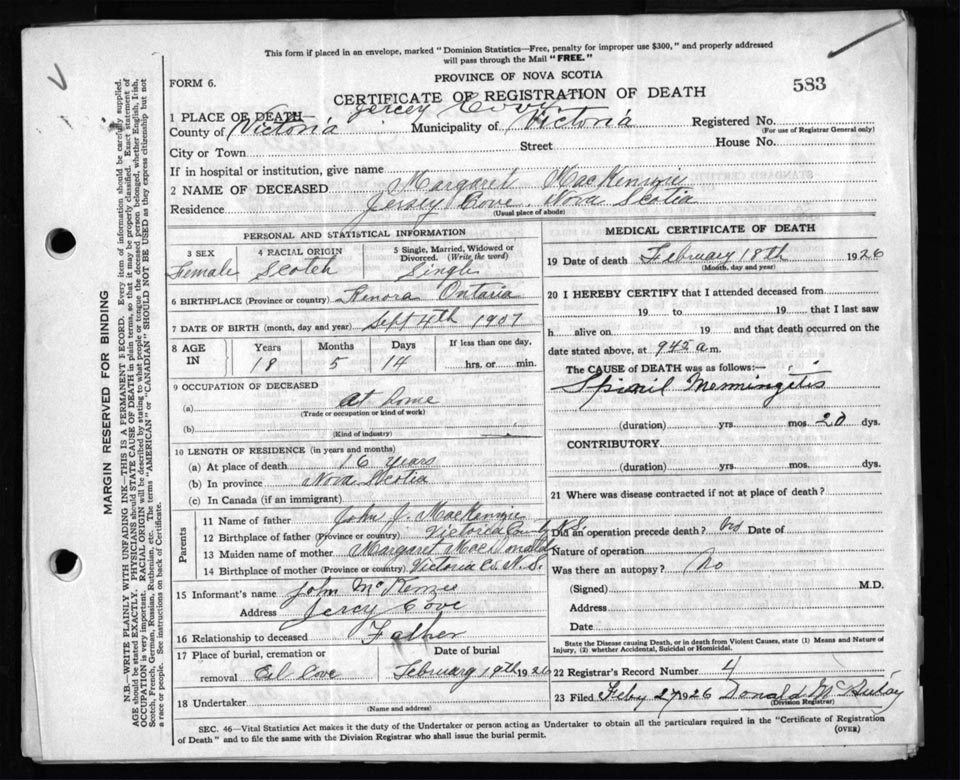 This form if placed in an envelope, marked "Dominion Statistics—Free, penalty for improper use $300," and properly addressed
will pass through the Mail "FREE."
FORM 6.
PROVINCE OF NOVA SCOTIA
583
CERTIFICATE OF REGISTRATION OF DEATH
1 PLACE OF DEATH Jercey Cove
County of Victoria Municipality of Victoria Registered No.
(For use of Registrar General only)
City or Town Street House No.
If in hospital or institution, give name
2 NAME OF DECEASED Margaret MacKenzie
Residence Jersey Cove. Nova Scotia
(Usual place of abode)
PERSONAL AND STATISTICAL INFORMATION
3 SEX 4 RACIAL ORIGIN 5 Single, Married, Widowed or
Divorced. (Write the word)
Female Scotch Single
6 BIRTHPLACE (Province or country) Kenora Ontario
7 DATE OF BIRTH (month, day and year) Sept 4th 1907
8 AGE IN Years Months Days If less than one day,
18 5 14 hrs. or min.
9 OCCUPATION OF DECEASED
(a) at home
(Trade or occupation or kind of work)
(b)
(Kind of industry)
10 LENGTH OF RESIDENCE (in years and months)
(a) At place of death 16 years
(b) In province Nova Scotia
(c) In Canada (if an immigrant)
Parents
11 Name of father John J. MacKenzie
12 Birthplace of father (Province or country) Victoria County N.S.
13 Maiden name of mother Margaret MacDonald
14 Birthplace of mother (Province or country) Victoria Co. N.S.
15 Informant's name John McKenzie
Address Jercy Cove
16 Relationship to deceased Father
17 Place of burial, cremation or Date of burial
removal Eel Cove February 19th 1926
18 Undertaker
(Name and address)
MEDICAL CERTIFICATE OF DEATH
19 Date of death February 18th 1926
(Month, day and year)
20 I HEREBY CERTIFY that I attended deceased from
19 to 19 that I last saw
h alive on 19 and that death occurred on the
date stated above, at 942 a m.
The CAUSE of DEATH was as follows:—
Spinil Menningetis
(duration) yrs mos. 20 dys.
CONTRIBUTORY
(duration) yrs. mos. dys.
21 Where was disease contracted if not at place of death?
Did an operation precede death? no Date of
Nature of operation
Was there an autopsy? No
(Signed) M.D.
Address
Date
State the Disease causing Death, or in death from Violent Causes, state (1) Means and Nature of
Injury, (2) whether Accidental, Suicidal or Homicidal.
22 Registrar's Record Number 4
23 Filed Feby 27 1926 Donald
(Division Registrar)
SEC. 46—Vital Statistics Act makes it the duty of the Undertaker or person acting as Undertaker to obtain all the particulars required in the "Certificate of Registration
of Death" and to file the same with the Division Registrar who shall issue the burial permit.
(OVER)
MARGIN RESERVED FOR BINDING
N.B.—WRITE PLAINLY WITH UNFADING INK—THIS IS A PERMANENT RECORD. Every item of information should be carefully supplied.
AGE should be stated EXACTLY. PHYSICIANS should STATE CAUSE OF DEATH in plain terms, so that it may be properly classified. Exact statement of
OCCUPATION is very important. RACIAL ORIGIN will be described by stating to what people or tongue the deceased person belonged, whether English, Irish,
Scotch, French, German, Russian, Ruthenian, etc. The terms "AMERICAN" or "CANADIAN" SHOULD NOT BE USED as they express citizenship but not
a race or people. See instructions on back of Certificate.